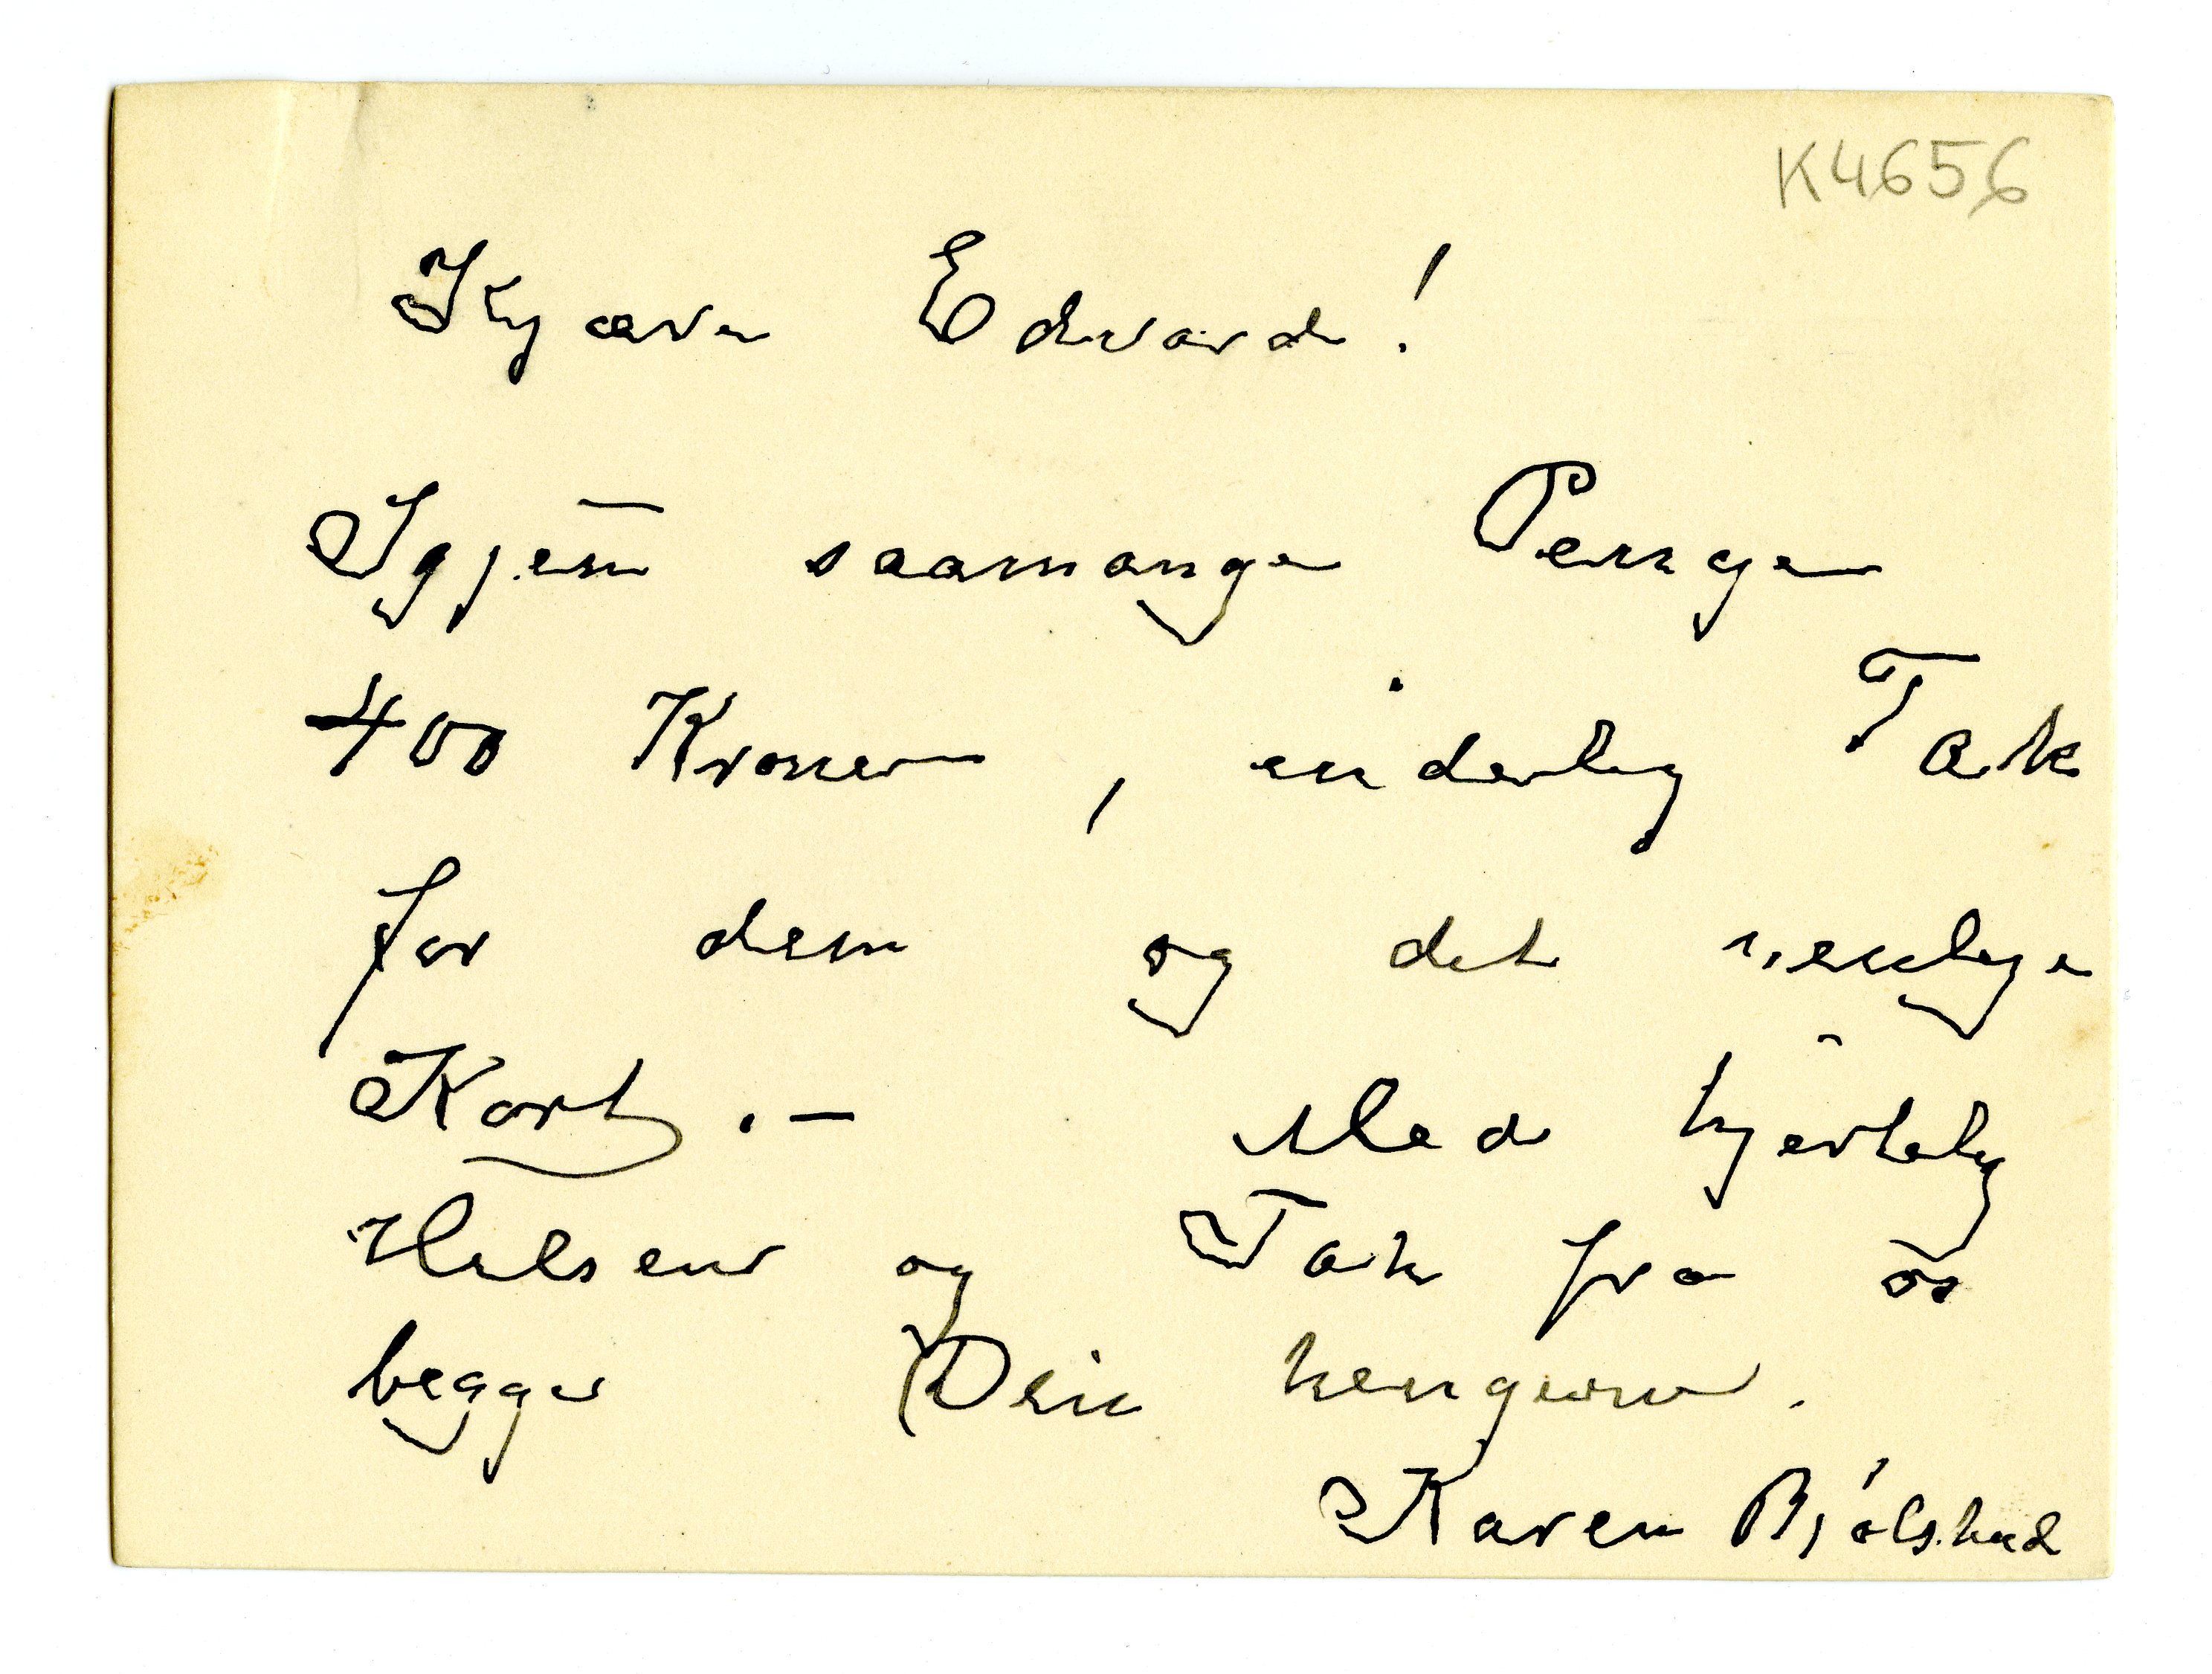 K4656
Kjære Edvard!
Igjen saamange Penge
400 Kroner, inderlig Tak
for dem og det venlige
Kort.— Med hjertelig
Hilsen og Tak fra os
begge Din hengivne.
Karen Bjølstad